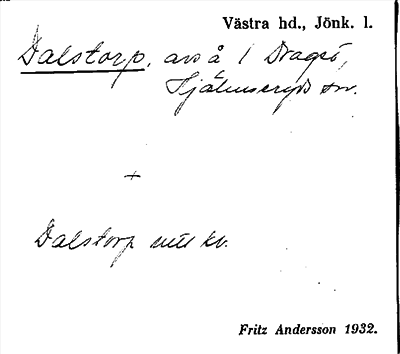 Västra hd., Jönk. l.
Dalstorp, avs å 1 Dragsö,
Hjälmseryds sn.
+
Dalstorp utt kv.
Fritz Andersson 1932.